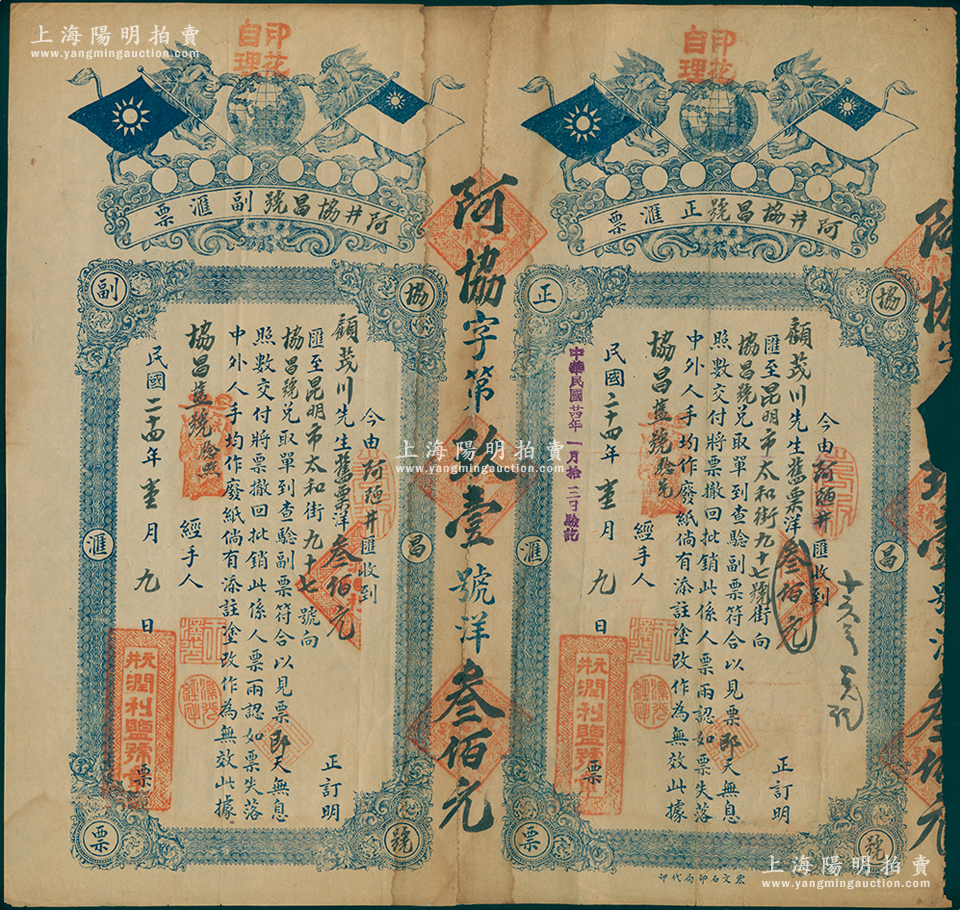 上海陽明拍賣
www.yangmingauction.com
印花
自理
阿井協昌號正滙票
協
昌
號
正
滙
票
今由阿陋井匯收到
顧茂川先生舊票洋叁佰元
正訂明
匯至昆明市太和街九十七號街向
協昌號兌取單到查驗副票符合以見票即天無息
照數交付將票撤回批銷此係人票兩認如票失落
中外人手均作廢紙倘有添註塗改作為無效此據
協昌鹽號驗兌
經手人
民國二十四年壹月九日
票
中華民國廿四年一月拾三日驗訖
元井潤利鹽號
宏文石印局代印
阿協字第
壹號洋叁佰元
印花
自理
阿井協昌號副滙票
協
昌
號
副
滙
票
今由阿陋井匯收到
顧茂川先生舊票洋叁佰元
正訂明
匯至昆明市太和街九十七號向
協昌號兌取單到查驗副票符合以見票即天無息
照數交付將票撤回批銷此係人票兩認如票失落
中外人手均作廢紙倘有添註塗改作為無效此據
協昌鹽號驗照
經手人
民國二十四年壹月九日
票
元井潤利鹽號
上海陽明拍賣
www.yangmingauction.com
上海陽明拍賣
www.yangmingauction.com